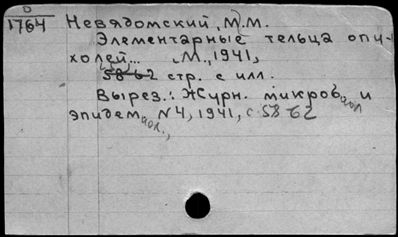 О
1764
Невядомский, М.М.
Элементарные тельца опу-
холей... М., 1941,
58-62 стр. с илл.
Вырез.: Журн. микробиол и
эпидемиол., N4, 1941, с 58-62